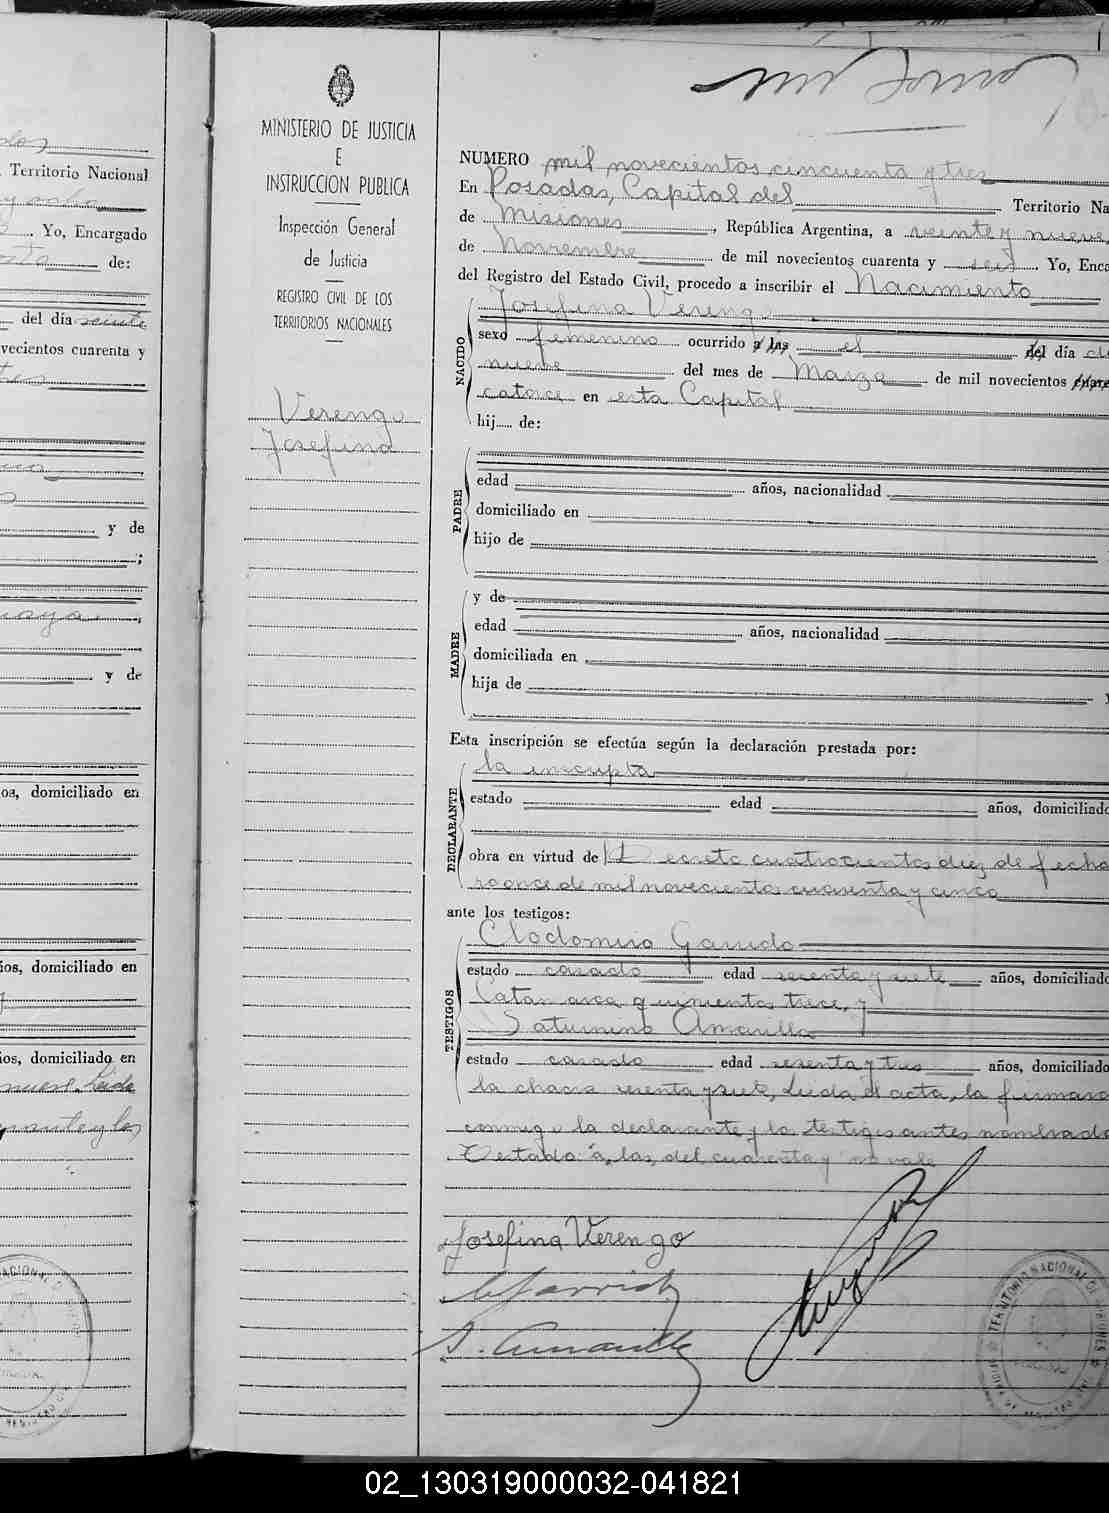 MINISTERIO DE JUSTICIA
E
INSTRUCCION PUBLICA
Inspección General
de Justicia
REGISTRO CIVIL DE LOS
TERRITORIOS NACIONALES
Verengo
Josefina
Territorio Nacional
Yo, Encargado
de:
del día veinte
vecientos cuarenta y
y de
y de
os, domiciliado en
ios, domiciliado en
ios, domiciliado en
NUMERO mil novecientos cincuenta y tres
En Posadas, Capital del Territorio Na
de Misiones, República Argentina, a veinte y nueve
de Noviembre de mil novecientos cuarenta y seis. Yo, Enca
del Registro del Estado Civil, procedo a inscribir el Nacimiento
NACIDO
Josefina Verengo
sexo femenino ocurrido a las el del día de
nueve del mes de Marzo de mil novecientos cuare
catorce en esta Capital
hij de:
PADRE
edad años, nacionalidad
domiciliado en
hijo de
MADRE
y de
edad años, nacionalidad
domiciliada en
hija de
Esta inscripción se efectúa según la declaración prestada por:
DECLARANTE
la inscripta
estado edad años, domiciliado
obra en virtud de Decreto cuatrocientos diez de fecha
de mil novecientos cuarenta y cinco
ante los testigos:
TESTIGOS
Clodomiro Garrido
estado casado edad sesenta y siete años, domiciliado
Catamarca quinientos trece, y
Saturnino Amarilla
estado casado edad sesenta y tres años, domiciliado
la chacra sesenta y siete, Leida el acta, la firmaro
conmigo la declarante y los testigos antes nombrado
Testado: a, las, del, cuarenta y no vale
Josefina Verengo
S. Amarilla
TERRITORIO NACIONAL DE MISIONES
02_130319000032-041821